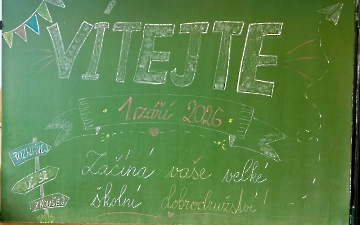 VÍTEJTE
1. září 2026
Začíná vaše velké
školní dobrodružství!
POZNÁVEJ